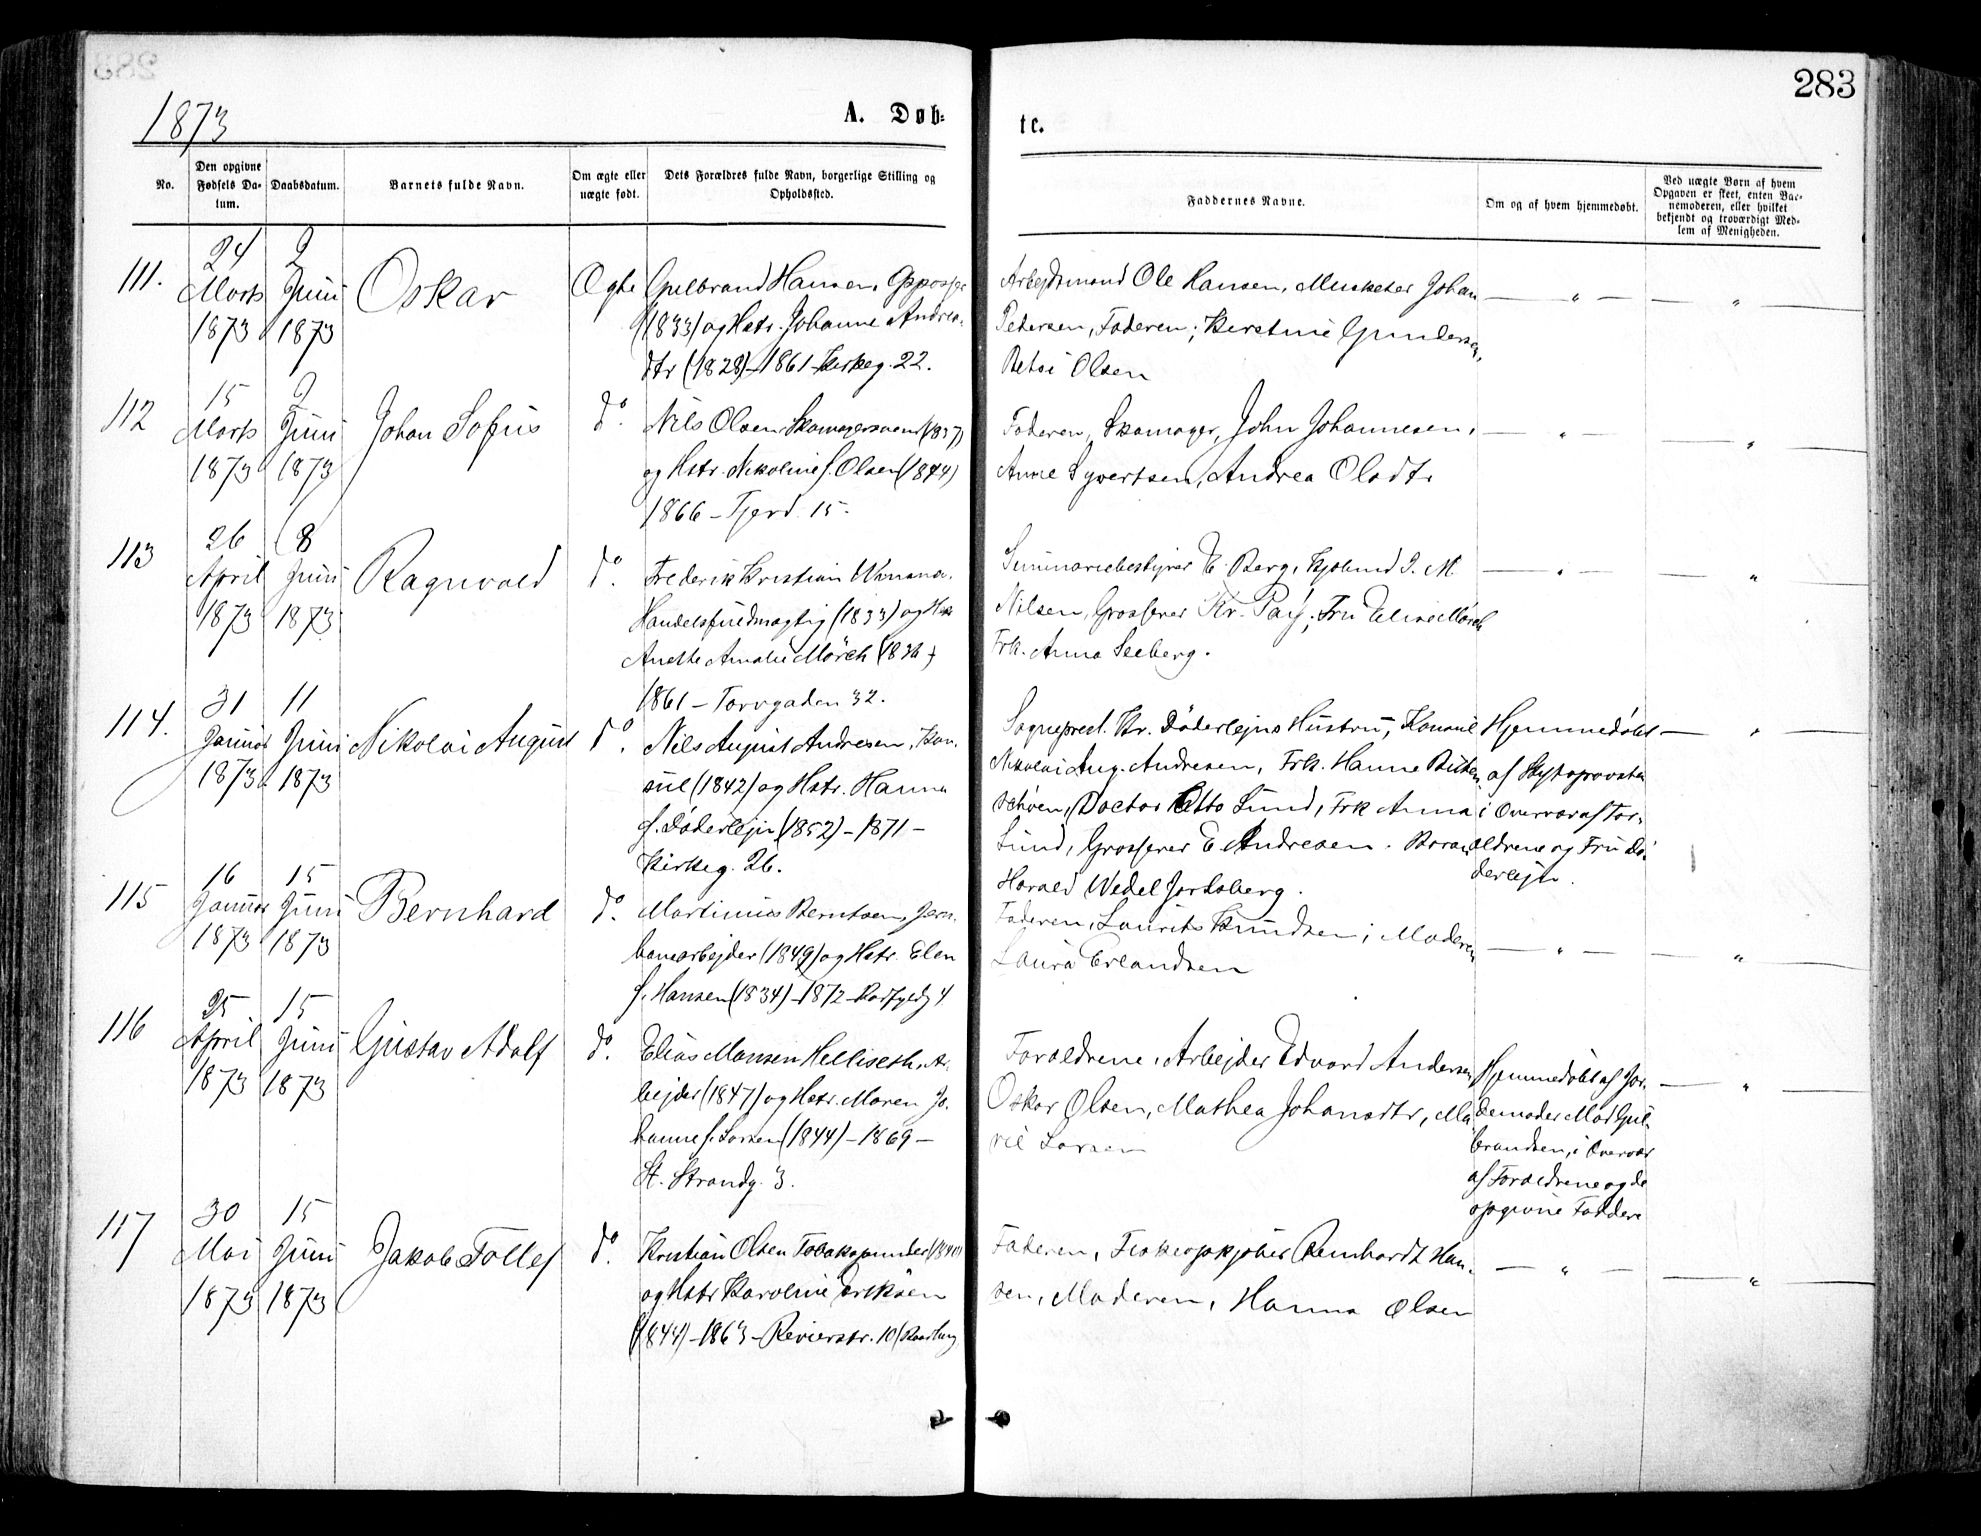 283
1873
A. Døb-
te.
No.
Den opgivne Fødsels Da-
tum.
Daabsdatum.
Barnets fulde Navn.
Om ægte eller
uægte født.
Dets Forældres fulde Navn, borgerlige Stilling og
Opholdssted.
Faddernes Navne.
Om og af hvem hjemmedøbt.
Ved uægte Børn af hvem
Opgaven er skeet, enten Bar-
nemoderen, eller hvilket
bekjendt og troværdigt Med-
lem af Menigheden.
111.
24
Marts
1873
2
Juni
1873
Oskar
Ægte
Gulbrand Hansen,
(1833) og Hstr. Johanne Andrea-
dtr (1828) – 1861 Kirkeg. 22.
Arbejdsmand Ole Hansen, Musketer Johan
Pedersen, Faderen; Kirstine Gundersen,
Olsen
112
15
Marts
1873
2
Juni
1873
Johan Sofus
do.
Nils Olsen Skomagersvend (1837)
og Hstr. Nikoline f. Olsen (1844)
1866 – Fjerd. 15.
Faderen, Skomager, John Johannesen,
Anne Syvertsen, Andrea Olsdt.
113
26
April
1873
8
Juni
1873
Ragnvald
do.
Frederik Kristian
Handelsfuldmægtig (1833) og Hstr
Anette Amalie Mörch (1836)
1861 – Torvgaden 32.
Seminariebestyrer E. Berg, Kjøbmd I. M.
Nilsen, Grosserer Kr. Pay; Fru Elise Mörch
Frk. Anna Seeberg.
114.
31
Januar
1873
11
Juni
1873
Nikolai August
do.
Nils August Andresen, Kon-
sul (1842) og Hstr. Hanna
f. Döderlejn (1852) – 1871 –
Kirkeg. 26.
Sogneprest Kr. Döderlejns Hustru, Konsul
Nikolai Aug. Andresen, Frk. Hanne Butten-
schøen, Doctor Otto Lund, Frk Anna
Lund, Grosserer E Andresen. Baron
Harald Wedel Jarlsberg.
Hjemmedöbt
af Stiftsprovsten
i Overvær af For-
ældrene og Fru Dö-
derlejn.
115
16
Januar
1873
15
Juni
1873
Bernhard
do.
Martinius Berntsen, Jern-
banearbejder (1849) og Hstr. Elen
f. Hansen (1834) – 1872
Faderen, Laurits Knudsen; Moderen
Laura Erlandsen
116
25
April
1873
15
Juni
1873
Gustav Adolf
do.
Elias Monsen Helliseth, Ar-
bejder (1847) og Hstr. Maren Jo-
hanne f. Larsen (1844) – 1869 –
St. Strandg. 3.
Forældrene, Arbejder Edvard Andersen
Oskar Olsen, Mathea Johansdtr, Ma-
rie Larsen
Hjemmedöbt af Jor-
demoder Mad Gul-
brandsen, i Overvær
af Forældrene og de
opgivne Faddere
117
30
Mai
1873
15
Juni
1873
Jakob Tollef
do.
Kristian Olsen Tobakspinder (1840)
og Hstr Karoline Eriksen
(1844) – 1863 – Revierstr. 10
Faderen, Reinhardt Han-
sen, Moderen, Hanna Olsen